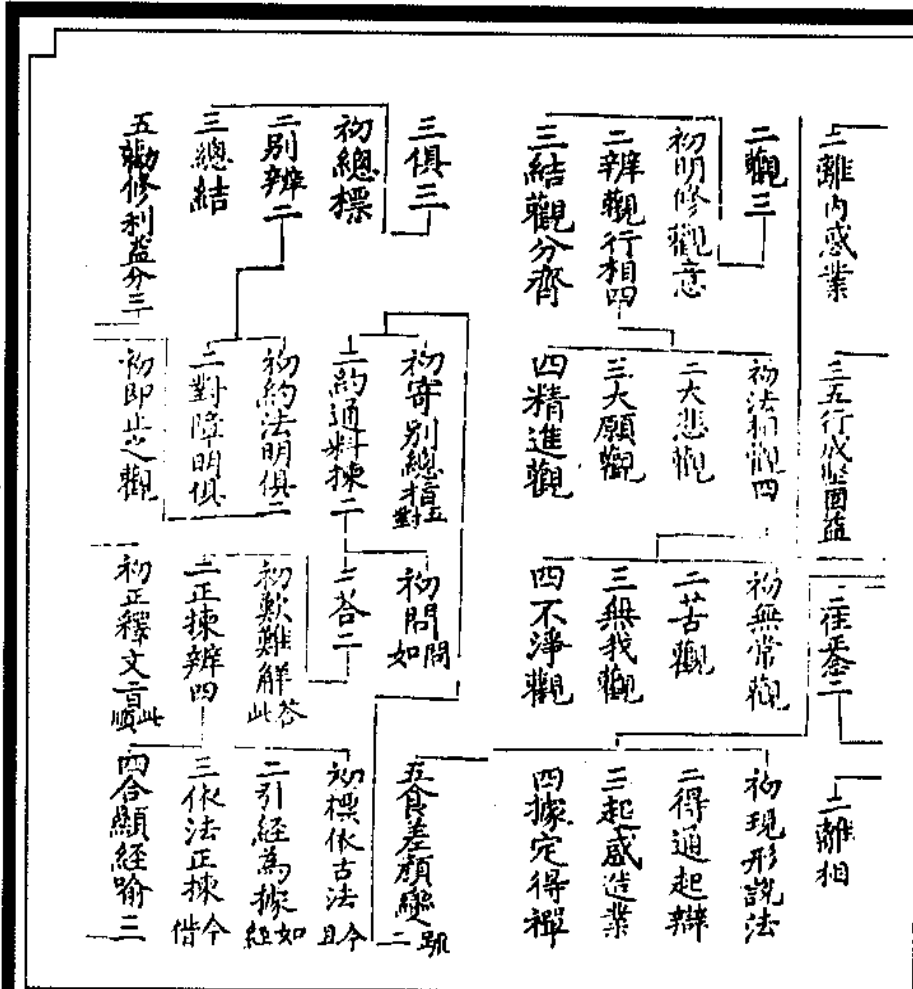 二離內惑業
三五行成堅固益
二往悉二
二離相
二觀三
初明修觀意
二辨觀行相四
三結觀分齊
初法相觀四
二大悲觀
三大願觀
四精進觀
初無常觀
二苦觀
三無我觀
四不淨觀
初現形說法
二得通起辯
三起惑造業
四據定得禪
五食差顏變 二
三俱三
初總標
二別辨二
三總結
五勸修利益分三
初寄別總指 五對
二約通料揀二
初約法明俱二
二對障明俱
初即止之觀
初問 問如
二答二
初歎難解 答此
二正揀辨四
初正釋文二 此順
初標依古法 今且
二引經為據 如經
三依法正揀 今借
四合顯經喻三